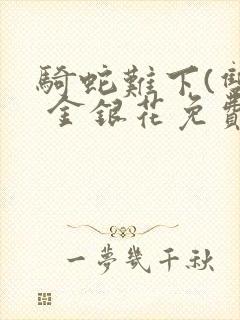 騎蛇難下(雙
金銀花免費
一夢幾千秋